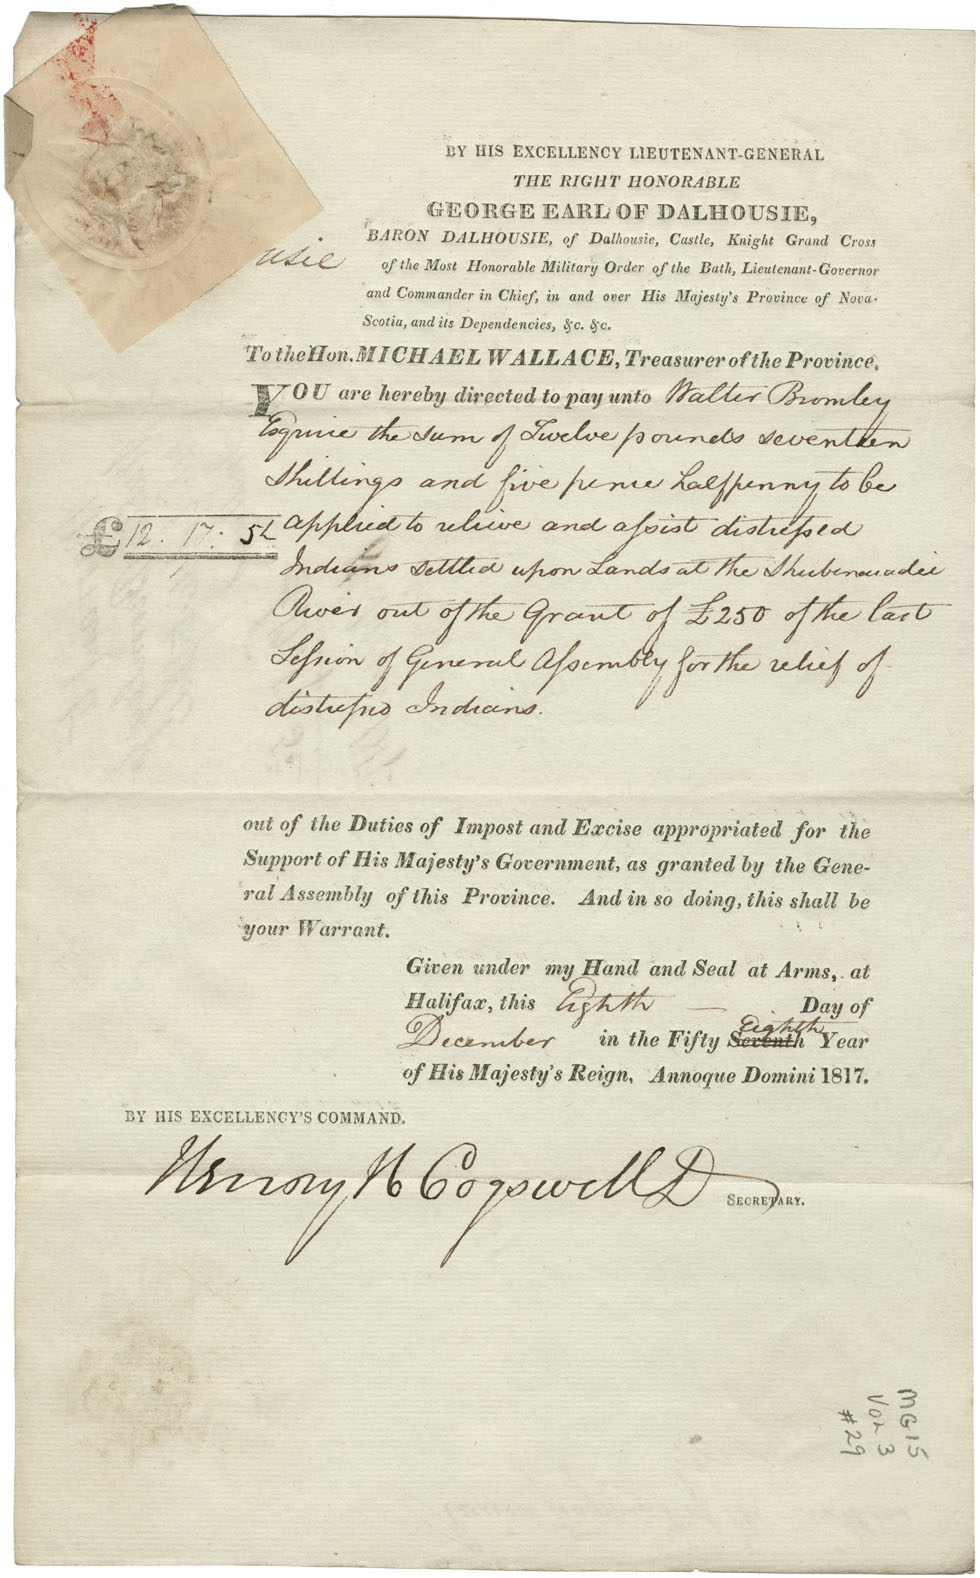 BY HIS EXCELLENCY LIEUTENANT-GENERAL
THE RIGHT HONORABLE
GEORGE EARL OF DALHOUSIE,
BARON DALHOUSIE, of Dalhousie, Castle, Knight Grand Cross
usie
of the Most Honorable Military Order of the Bath, Lieutenant-Governor
and Commander in Chief, in and over His Majesty's Province of Nova-
Scotia, and its Dependencies, &c. &c.
To the Hon. MICHAEL WALLACE, Treasurer of the Province.
YOU are hereby directed to pay unto Walter Bromley
Esquire the sum of Twelve pounds seventeen
Shillings and five pence halfpenny to be
£12. 17. 5½ applied to relieve and assist distressed
Indians settled upon Lands at the Shubenacadie
River out of the Grant of £250 of the last
Session of General Assembly for the relief of
distressed Indians.
out of the Duties of Impost and Excise appropriated for the
Support of His Majesty's Government, as granted by the Gene-
ral Assembly of this Province. And in so doing, this shall be
your Warrant.
Given under my Hand and Seal at Arms, at
Halifax, this Eighth — Day of
Eighth
December in the Fifty Seventh Year
of His Majesty's Reign, Annoque Domini 1817.
BY HIS EXCELLENCY'S COMMAND.
Henry H Cogswell D
SECRETARY.
MG 15
Vol 3
#29